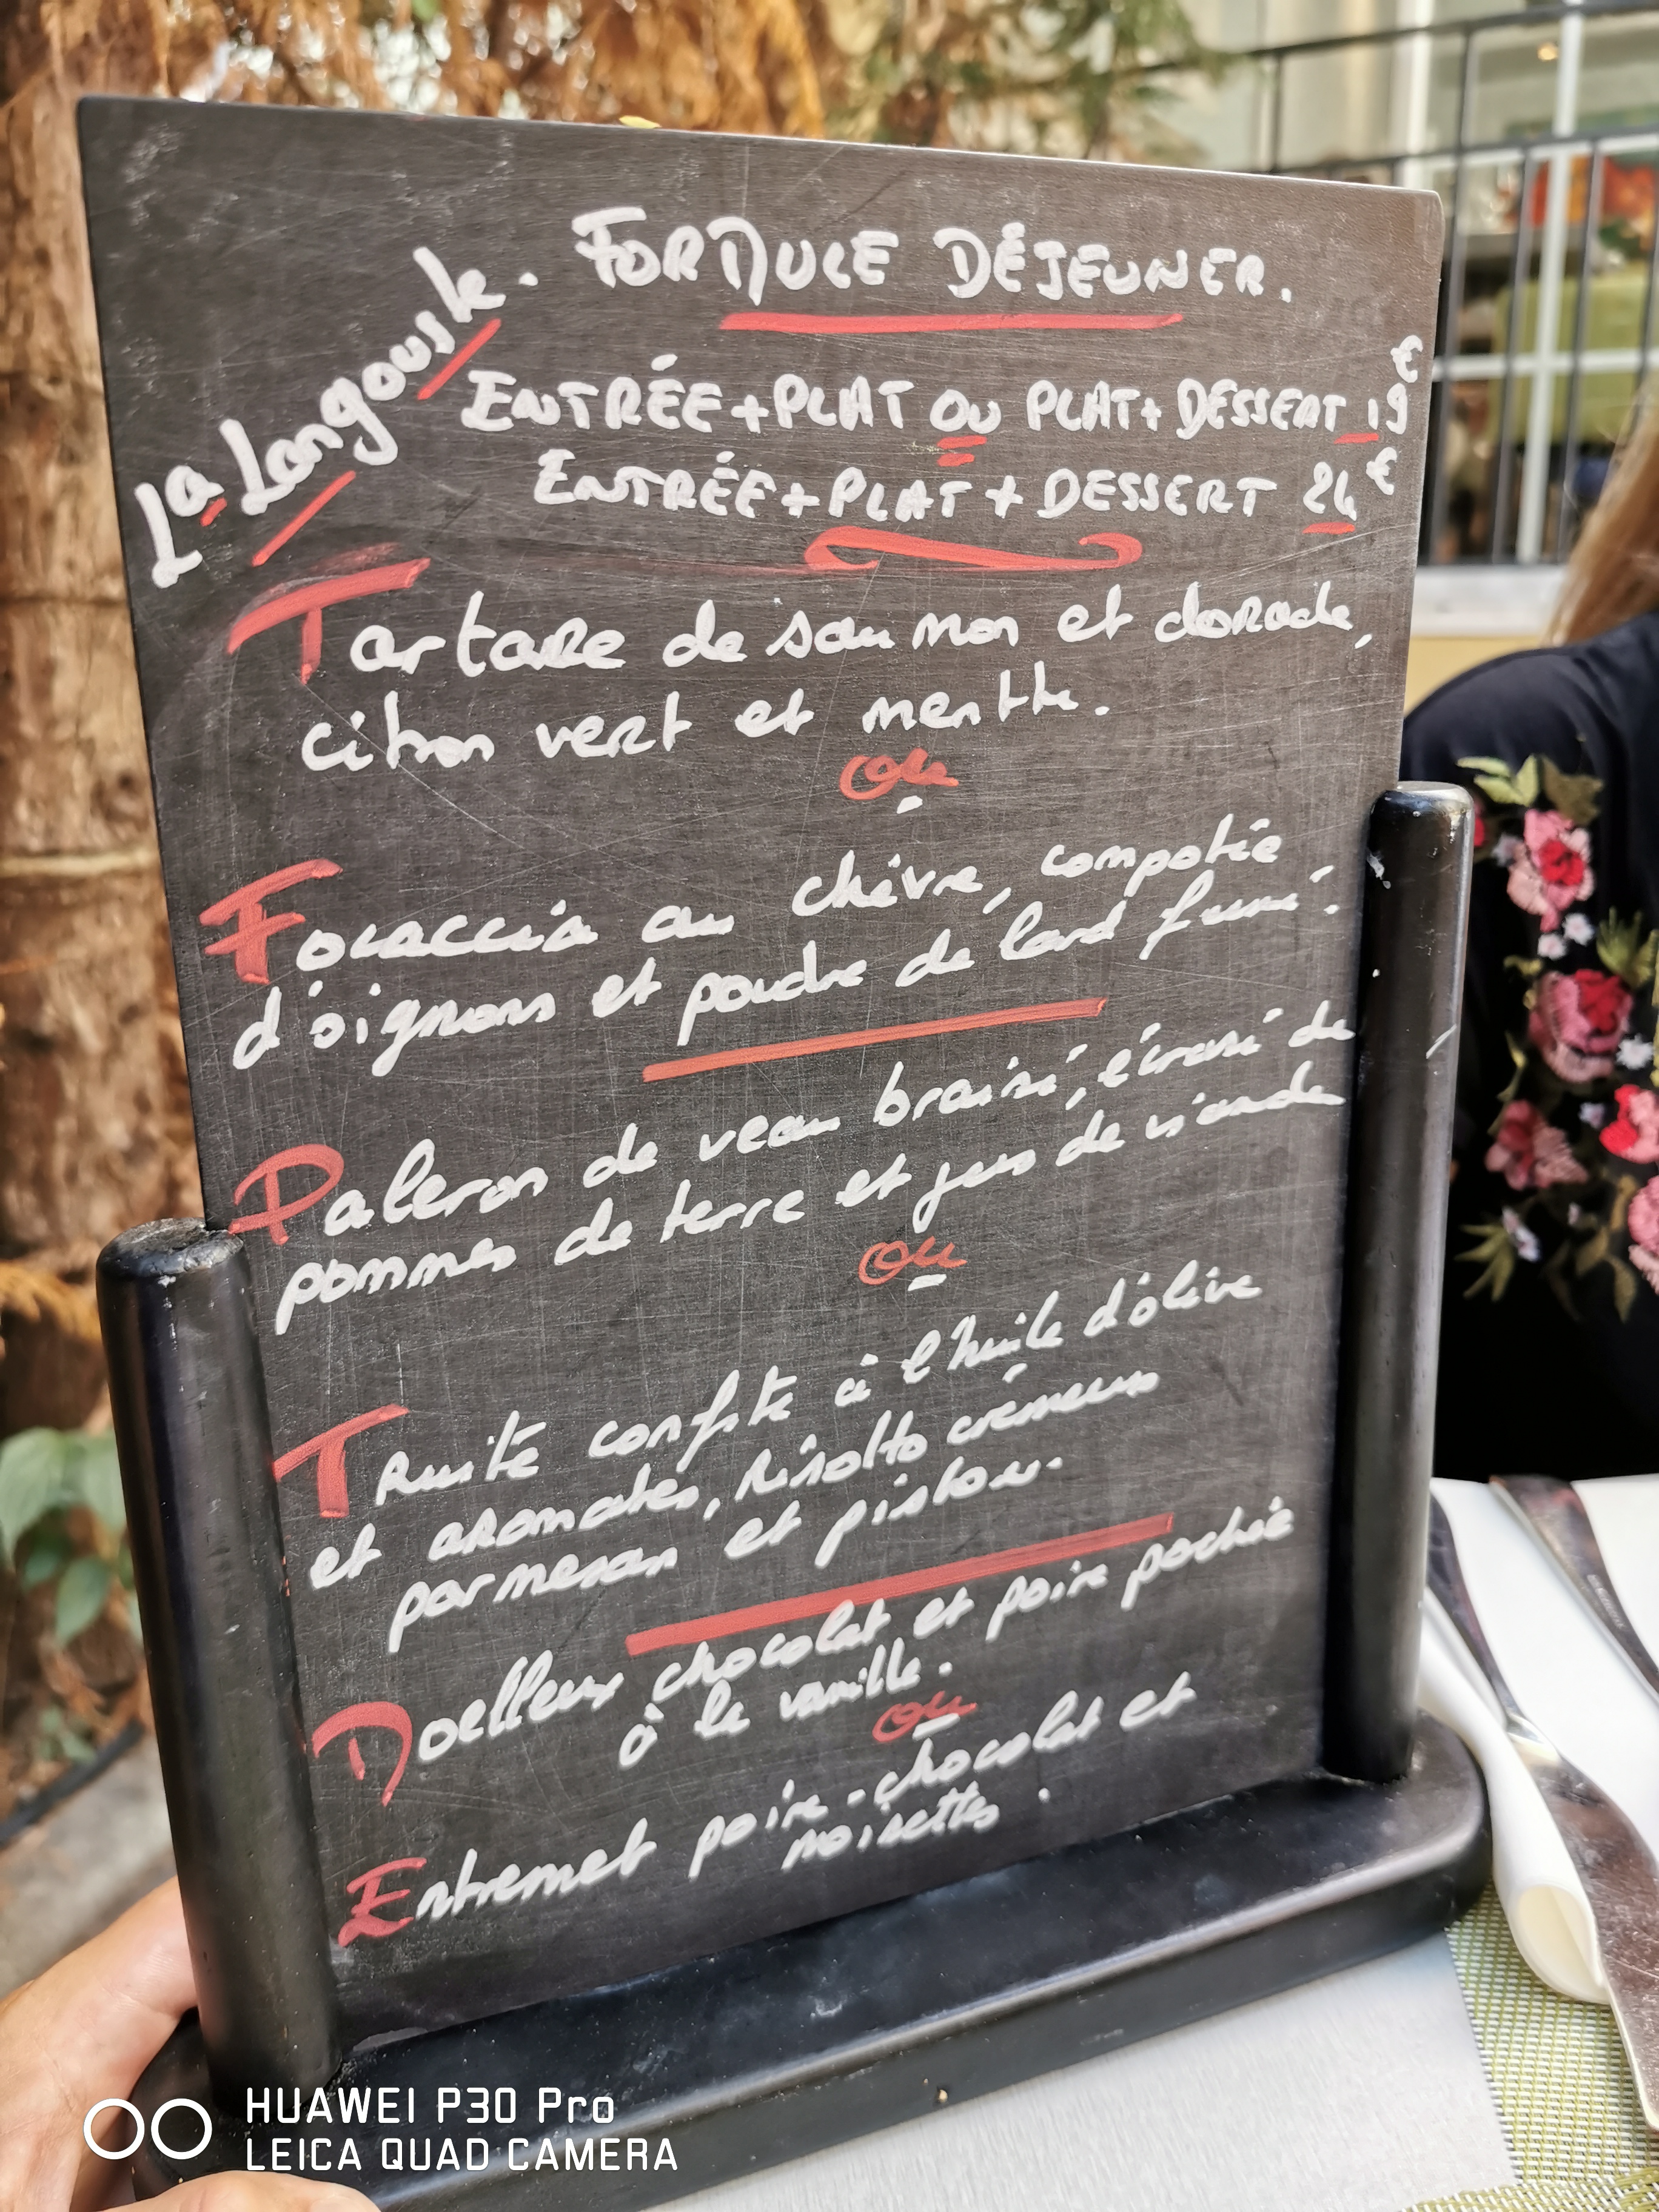 La Langouste. FORMULE DÉJEUNER.
ENTRÉE + PLAT OU PLAT + DESSERT 19€
ENTRÉE + PLAT + DESSERT 24€
Tartare de saumon et dorade,
citron vert et menthe.
ou
Focaccia au chèvre, compotée
d'oignons et poudre de lard fumé.
Paleron de veau braisé, écrasé de
pommes de terre et jus de viande
ou
Truite confite à l'huile d'olive
et aromates, risotto crémeux
parmesan et pistou.
Moelleux chocolat et poire pochée
à la vanille.
ou
Entremet poire-chocolat et
noisettes.
HUAWEI P30 Pro
LEICA QUAD CAMERA